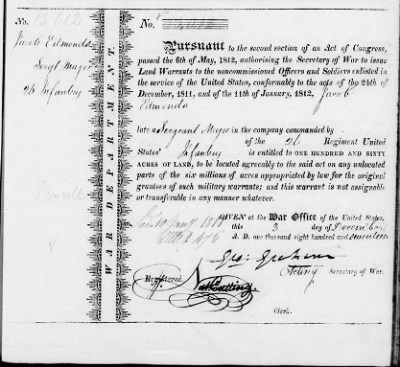 No. 13012
Jacob Edmonds
Sergt Major
26 Infantry
WAR DEPARTMENT.
No.
Pursuant to the second section of an Act of Congress,
passed the 6th of May, 1812, authorising the Secretary of War to issue
Land Warrants to the noncommissioned Officers and Soldiers enlisted in
the service of the United States, conformably to the acts of the 24th of
December, 1811, and of the 11th of January, 1812, Jacob
Edmonds
late a Sergeant Major in the company commanded by
of the 26 Regiment United
States' Infantry is entitled to ONE HUNDRED AND SIXTY
ACRES OF LAND, to be located agreeably to the said act on any unlocated
parts of the six millions of acres appropriated by law for the original
grantees of such military warrants; and this warrant is not assignable
or transferable in any manner whatever.
GIVEN at the War Office of the United States,
this 3 day of December
A. D. one thousand eight hundred and seventeen
Geo: Graham
Acting Secretary of War.
Registered.
Nat Cutting.
Clerk.